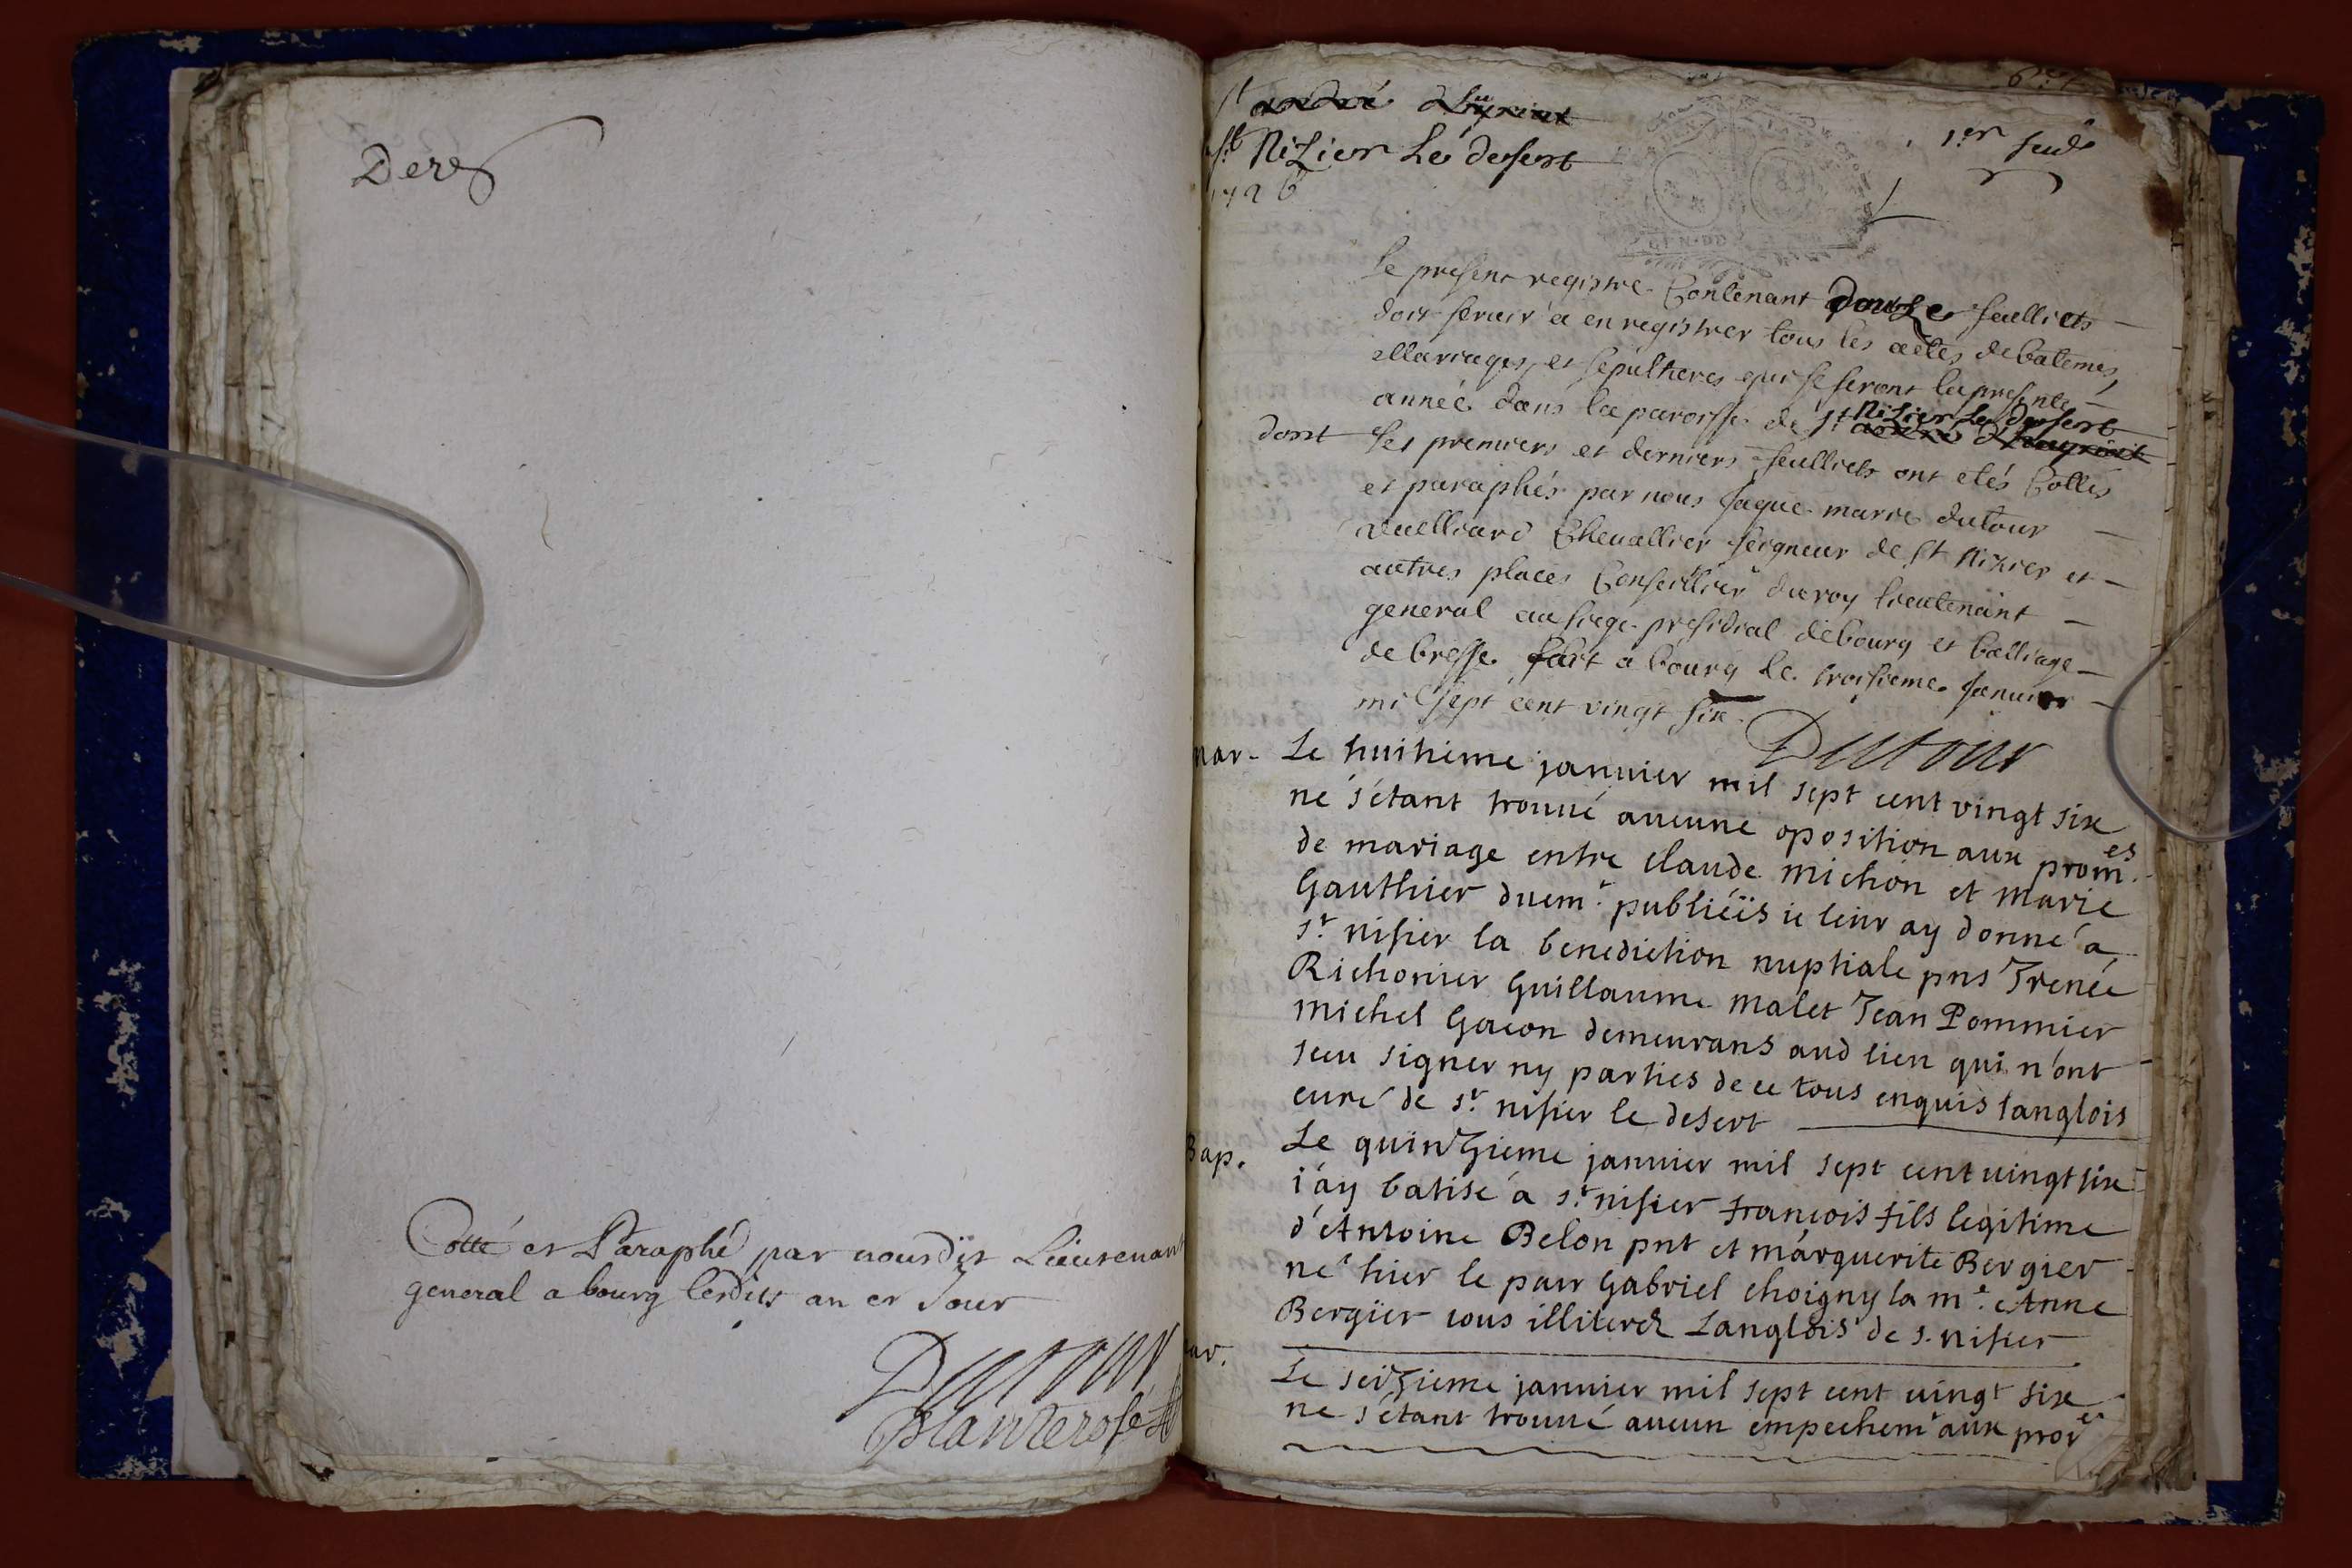 Der
Cotté et Paraphé par nousdit Lieutenant
general a bourg lesdits an et Jour
Dutour
Planterose
St andré
St Nizier Le desert
1726
1er feuillet
Le present registre Contenant Douze feulliets
doit servir a enregistrer tous les actes de batemes,
Mariages, et sepultures qui se feront la presente
année dans la paroisse de St Nizier Le Desert
dont Les premiers et derniers feulliets ont etés Cottés
et paraphés par nous Jaque marie dutour
vuelliard Chevallier seigneur de St Nizier et
autres places Conseillier du roy lieutenant
general au siege presidial de bourg et balliage
de bresse. fait a bourg le troisieme Januier
mil sept cent vingt six.
Dutour
mar. Le huitieme januier mil sept cent vingt six
ne s'étant trouué aucune oposition aux prom.es
de mariage entre Claude Michon et Marie
Gauthier duem.t publiéës ie leur ay donné a
St nisier la benediction nuptiale pns Irenée
Richonier Guillaume Malet Jean Pommier
Michel Gacon demeurans aud lieu qui n'ont
sceu signer ny parties de ce tous enquis langlois
curé de St. nisier le desert
Bap. Le quinzieme januier mil sept cent uingt six
i'ay batisé a St nisier François fils legitime
d'Antoine Belon pnt et marguerite Bergier
né hier le parr Gabriel Choigny la m.e Anne
Bergier tous illiterez Langlois de S. nisier
mar. Le seizieme januier mil sept cent uingt six
ne s'étant trouué aucun empechem.t aux pro